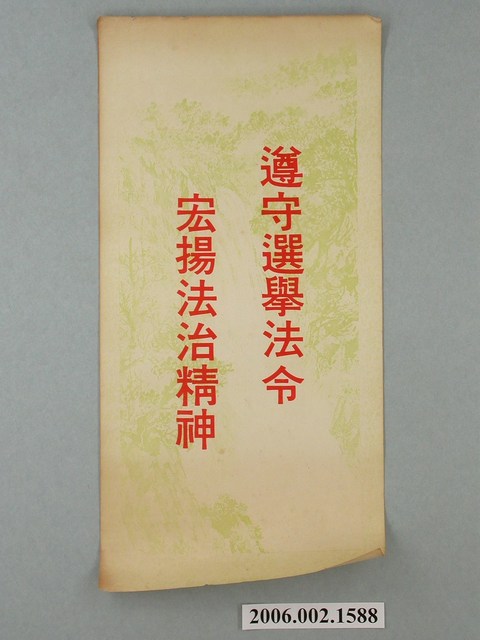 遵守選舉法令
宏揚法治精神
2006.002.1588